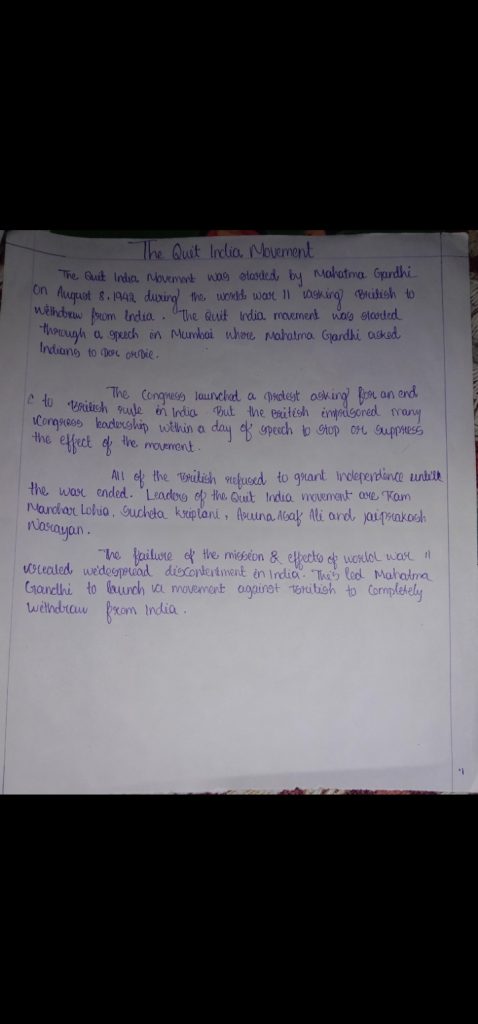 The Quit India Movement
The Quit India Movement was started by Mahatma Gandhi
on August 8, 1942, during the world war II asking British to
withdraw from India. The Quit India movement was started
through a speech in Mumbai where Mahatma Gandhi asked
Indians to Do or Die.
The Congress launched a protest asking for an end
to British rule in India. But the British imprisoned many
Congress leadership within a day of speech to stop or suppress
the effect of the movement.
All of the British refused to grant independence until
the war ended. Leaders of the Quit India movement are Ram
Manohar Lohia, Sucheta Kriplani, Aruna Asaf Ali and Jaiprakash
Narayan.
The failure of the mission & effects of world war II
created widespread discontentment in India. This led Mahatma
Gandhi to launch a movement against British to completely
withdraw from India.